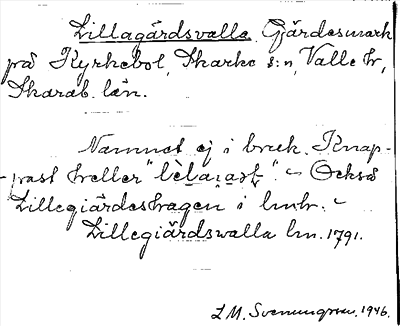 Lillagärdsvalla Gärdesmark
på Kyrkebol, Skarke s:n, Valle hr,
Skarab. län.
Namnet ej i bruk. Knap-
past heller " ". – Också
Lillegiärdeshagen i lmhr. –
Lillegiärdswalla lm. 1791.
L M. Svenungsson. 1946.